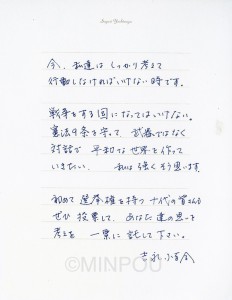 Sayuri Yoshinaga
今、私達は しっかり考えて
行動しなければいけない時です。
戦争をする国になってはいけない。
憲法9条を守って、武器ではなく
対話で 平和な世界を作って
いきたい、 私は強くそう思います
初めて選挙権を持つ十代の皆さんも
ぜひ投票して、あなた達の思いを
考えを 一票に託して下さい。
吉永小百合
©MINPOU